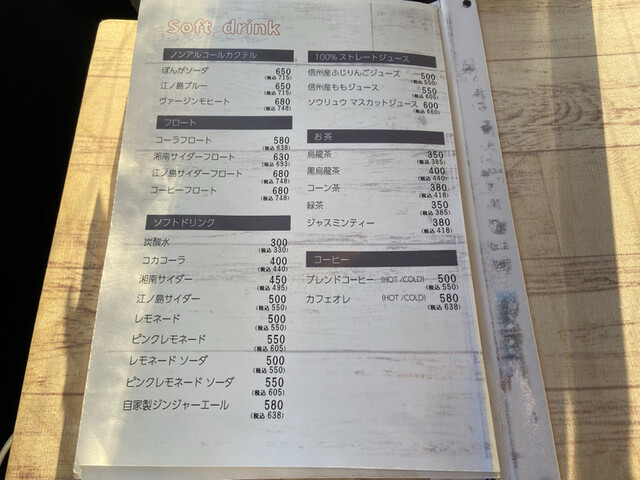 Soft drink
ノンアルコールカクテル
ぽんがソーダ 650
(税込 715)
江ノ島ブルー 650
(税込 715)
ヴァージンモヒート 680
(税込 748)
フロート
コーラフロート 580
(税込 638)
湘南サイダーフロート 630
(税込 693)
江ノ島サイダーフロート 680
(税込 748)
コーヒーフロート 680
(税込 748)
ソフトドリンク
炭酸水 300
(税込 330)
コカコーラ 400
(税込 440)
湘南サイダー 450
(税込 495)
江ノ島サイダー 500
(税込 550)
レモネード 500
(税込 550)
ピンクレモネード 550
(税込 605)
レモネード ソーダ 500
(税込 550)
ピンクレモネード ソーダ 550
(税込 605)
自家製ジンジャーエール 580
(税込 638)
100%ストレートジュース
信州産ふじりんごジュース 500
(税込 550)
信州産ももジュース 550
(税込 605)
ソウリュウ マスカットジュース 600
(税込 660)
お茶
烏龍茶 350
(税込 385)
黒烏龍茶 400
(税込 440)
コーン茶 380
(税込 418)
緑茶 350
(税込 385)
ジャスミンティー 380
(税込 418)
コーヒー
ブレンドコーヒー (HOT /COLD) 500
(税込 550)
カフェオレ (HOT /COLD) 580
(税込 638)